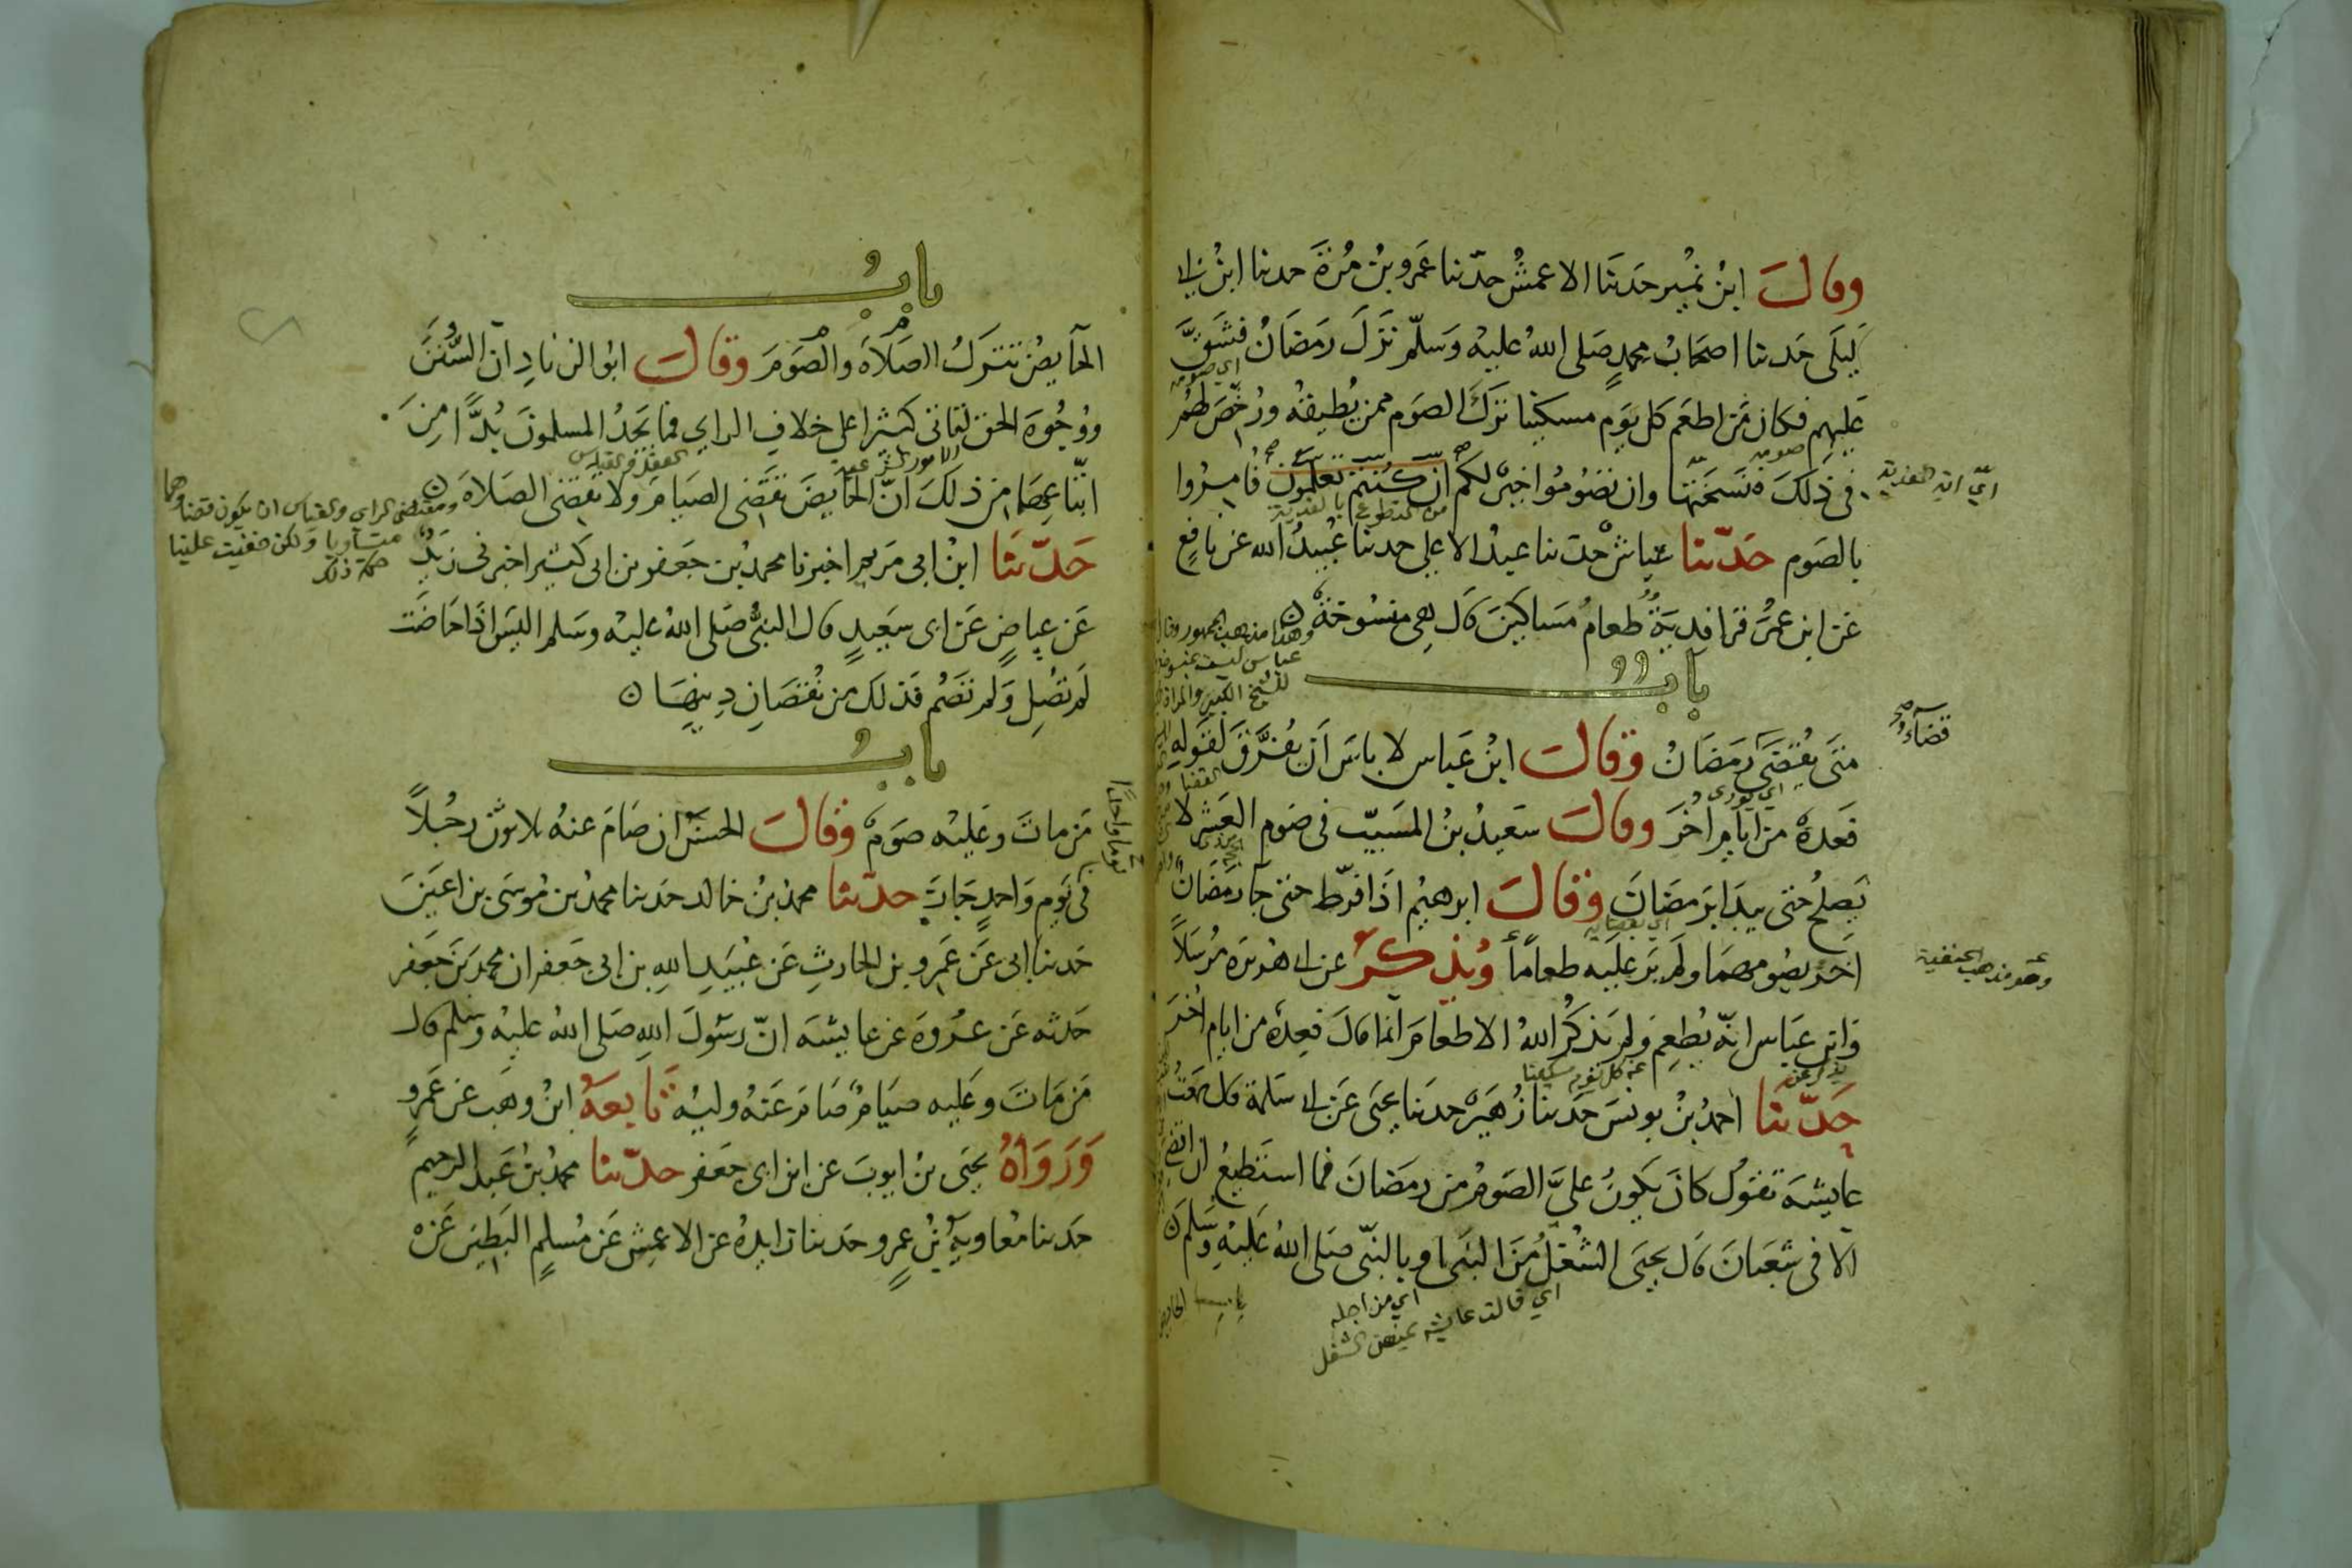 وقال ابن نمير حدثنا الاعمش حدثنا عمرو بن مرة حدثنا ابن ابي
ليلى حدثنا اصحاب محمد صلى الله عليه وسلم نزل رمضان فشق
اي صومه
عليهم فكان من اطعم كل يوم مسكينا ترك الصوم ممن يطيقه ورخص لهم
في ذلك فنسختها وان تصوموا خير لكم ان كنتم تعلمون فامروا
اي اية الفدية
من التطوع بالفدية
بالصوم حدثنا عياش حدثنا عبد الاعلى حدثنا عبيد الله عن نافع
عن ابن عمر قرا فدية طعام مساكين قال هي منسوخة
وهذا مذهب الجمهور وقال
عباس ليست بمنسوخة
للشيخ الكبير والمراة
باب
متى يقضى رمضان وقال ابن عباس لا باس ان يفرق لقوله
قضاء صح
فعدة من ايام اخر وقال سعيد بن المسيب في صوم العشر لا
يصلح حتى يبدا برمضان وقال ابرهيم اذا فرط حتى جا رمضان
اخر يصومهما ولم ير عليه طعاما ويذكر عن ابي هريرة مرسلا
وهو مذهب الحنفية
وابن عباس انه يطعم ولم يذكر الله الاطعام انما قال فعدة من ايام اخر
عن كل يوم مسكينا
حدثنا احمد بن يونس حدثنا زهير حدثنا يحيى عن ابي سلمة قال سمعت
عايشة تقول كان يكون علي الصوم من رمضان فما استطيع ان اقضي
الا في شعبان قال يحيى الشغل من النبي او بالنبي صلى الله عليه وسلم
اي من اجله
اي قالت عايشة يمنعني الشغل
باب الحايض
باب
الحايض تترك الصلاة والصوم وقال ابو الزناد ان السنن
ووجوه الحق لتاتي كثيرا على خلاف الراي فما يجد المسلمون بدا من
الامور الشرعية
العقل والقياس
اتباعها من ذلك ان الحايض تقضي الصيام ولا تقضي الصلاة
ومقتضى الراي والقياس ان يكون قضاوهما
متساويا ولكن خفيت علينا
حكمة ذلك
حدثنا ابن ابي مريم اخبرنا محمد بن جعفر بن ابي كثير اخبرني زيد
عن عياض عن ابي سعيد قال النبي صلى الله عليه وسلم اليس اذا حاضت
لم تصل ولم تصم فذلك من نقصان دينها
باب
من مات وعليه صوم وقال الحسن ان صام عنه ثلاثون رجلا
يوما واحدا
في يوم واحد جاز حدثنا محمد بن خالد حدثنا محمد بن موسى بن اعين
حدثنا ابي عن عمرو بن الحارث عن عبيد الله بن ابي جعفر ان محمد بن جعفر
حدثه عن عروة عن عايشة ان رسول الله صلى الله عليه وسلم قال
من مات وعليه صيام صام عنه وليه تابعه ابن وهب عن عمرو
ورواه يحيى بن ايوب عن ابن ابي جعفر حدثنا محمد بن عبد الرحيم
حدثنا معاوية بن عمرو حدثنا زايدة عن الاعمش عن مسلم البطين عن